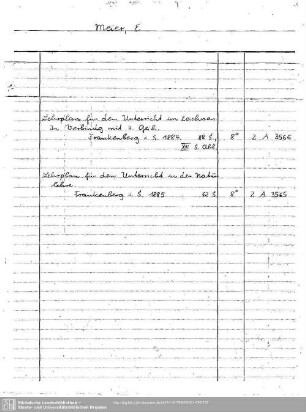 Meier, E.
Lehrplan für den Unterricht im Zeichnen
In Verbindung mit
Frankenberg i. S. 1884. 88 S., 8° Z A 3566
XII S. Abb.
Lehrplan für den Unterricht in der Natur
lehre.
Frankenberg i. S. 1885 62 S. 8° Z A 3565
Sächsische Landesbibliothek -
Staats- und Universitätsbibliothek Dresden